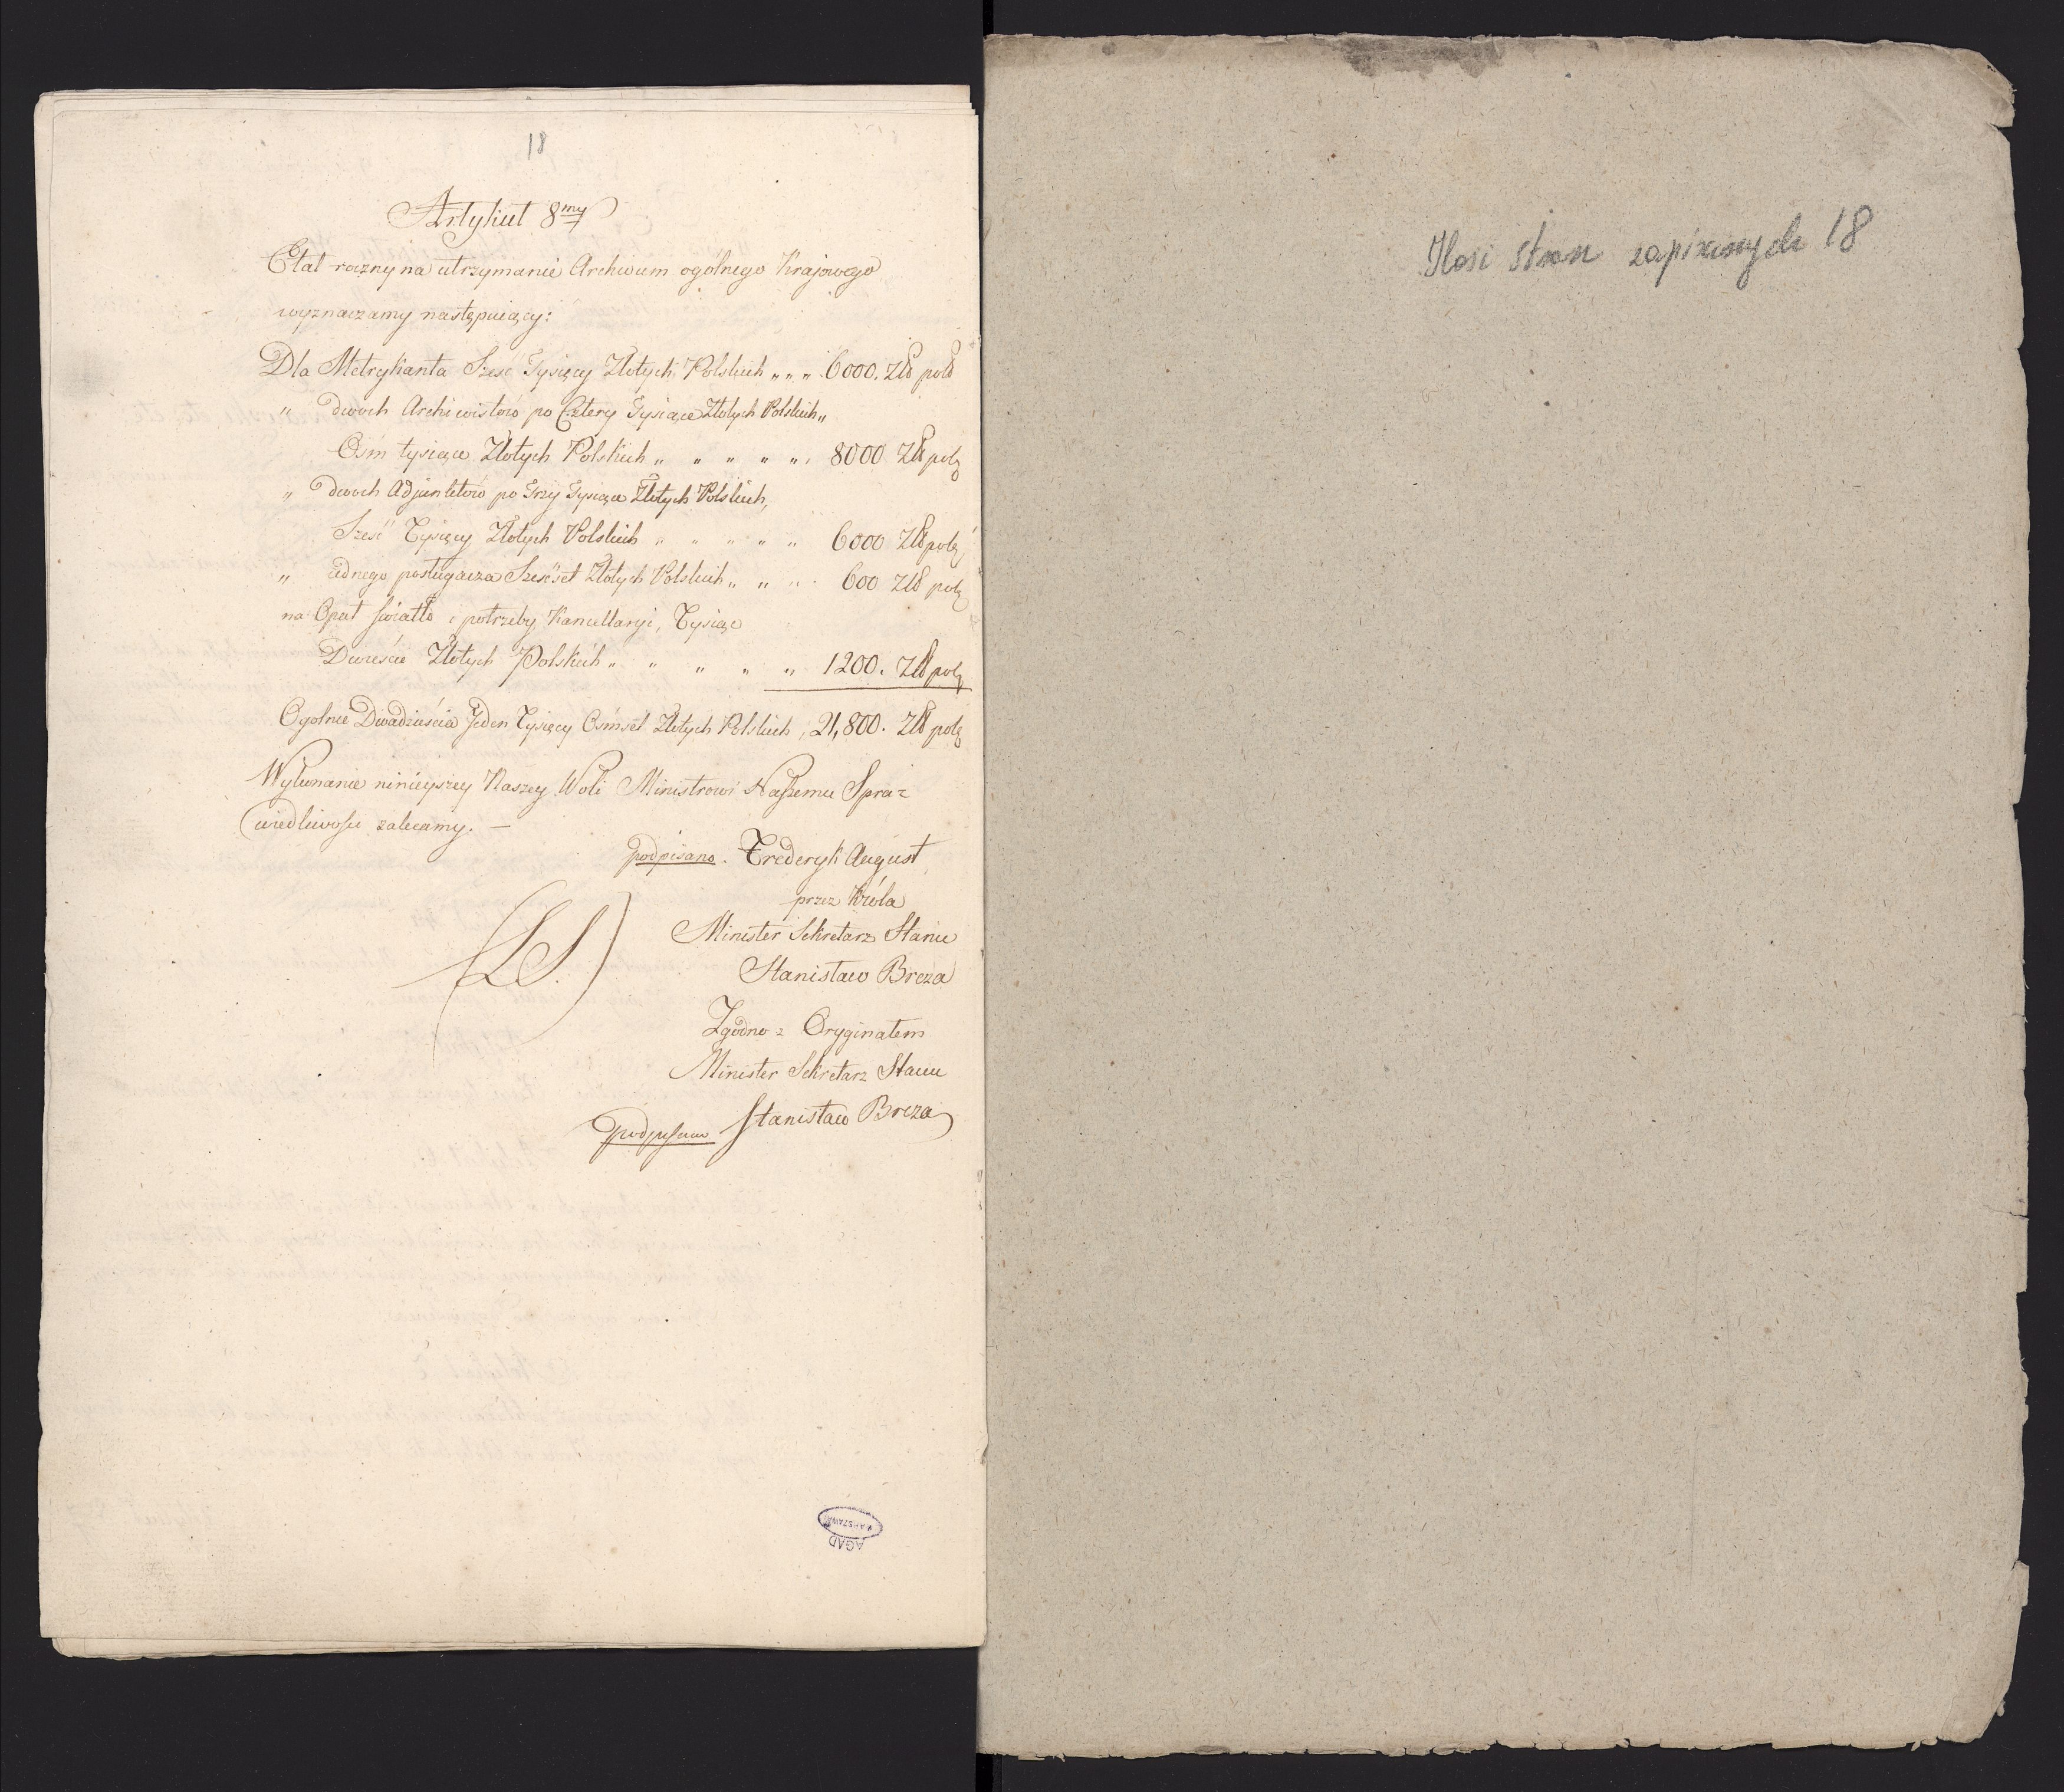 18
Artykuł 8my
Etat roczny na utrzymanie Archiwum ogolnego Krajowego
wyznaczamy następuiący:
Dla Metrykanta Sześć Tysięcy Złotych Polskich „ „ „ 6000. Złł polł
„ dwoch Archiwistow po Cztery Tysiące Złotych Polskich „
Ośm tysiące Złotych Polskich „ „ „ „ „ 8000 Złł pol
„ dwoch Adjunktow po Trzy Tysiące Złotych Polskich,
Sześć Tysięcy Złotych Polskich „ „ „ „ „ 6000 Złł pol
„ ednego posługacza Sześćset Złotych Polskich „ „ „ 600 Złł pol
na Opał światło i potrzeby Kancellaryi, Tysiąc
Dwieście Złotych Polskich „ „ „ „ „ 1200. Złł pol
Ogolnie Dwadzieścia Jeden Tysięcy Ośmset Złotych Polskich, 21,800. Złł pol
Wykonanie ninieyszey Naszey Woli Ministrowi Naszemu Spra=
wiedliwości zalecamy. —
podpisano. Frederyk August
przez Króla
Minister Sekretarz Stanu
(LS.)
Stanisław Breza
Zgodno z Oryginałem
Minister Sekretarz Stanu
podpisano Stanisław Breza
AGAD
WARSZAWA
Ilosi stron zapisanych 18